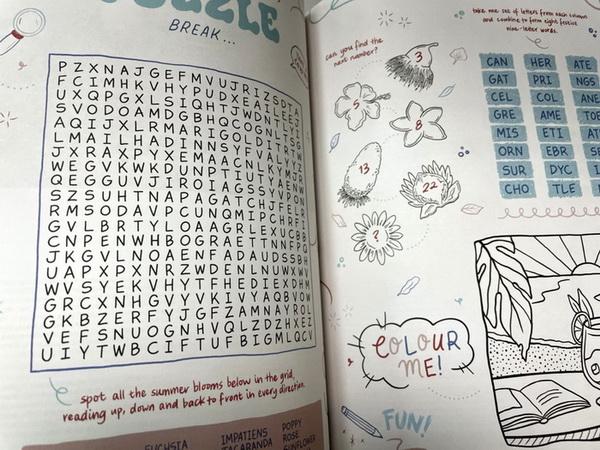 BREAK...
PZXNAJGEFMVUJRIZSDTA
FCIMHKVHYPUDXEAITEJ
UXQPGXLSIQHTJWDNLZ
SVODOAMDGBHQCOGNLTSG
AQIJXLRMARIGOLDITRTW
LMAILHADINNSYFVALYMZ
JXRAXPYXEMAACNLKYJR
WEGVKWKDUNPTIUTYAEN
QEGGUVJIROIAGSSVVPON
SZSUHTNAPAGATCHJFELO
RMSODAVPCUNQMIPCHRFI
GVLBRTYLOAAGRLEXUCB
CNPENWHBOGRAETTNNFQ
JKGVLNOAENFADAUDSSBH
UAPXPXNRZWDENLNUWXWV
WVSYEKVHYTFHEDIEXDHM
GRCXNHGVYVKIVYAQBVOW
GKBZERFYJGFZAMNAYROL
VEFSNUOGNHVQLZDZHXEZ
UIYTWBCIFTUFBIGMLQCV
spot all the summer blooms below in the grid,
reading up, down and back to front in every direction.
FUCHSIA IMPATIENS POPPY
JACARANDA ROSE
SUNFLOWER
can you find the
next number?
3
5
8
13
22
?
take one set of letters from each column
and counting to form eight festive
nine-letter words.
CAN HER ATE
GAT PRI NGS
CEL COL
GRE AME
MIS ETI
ORN EBR
SUR DYC
CHO TLE
COLOUR
ME!
FUN!